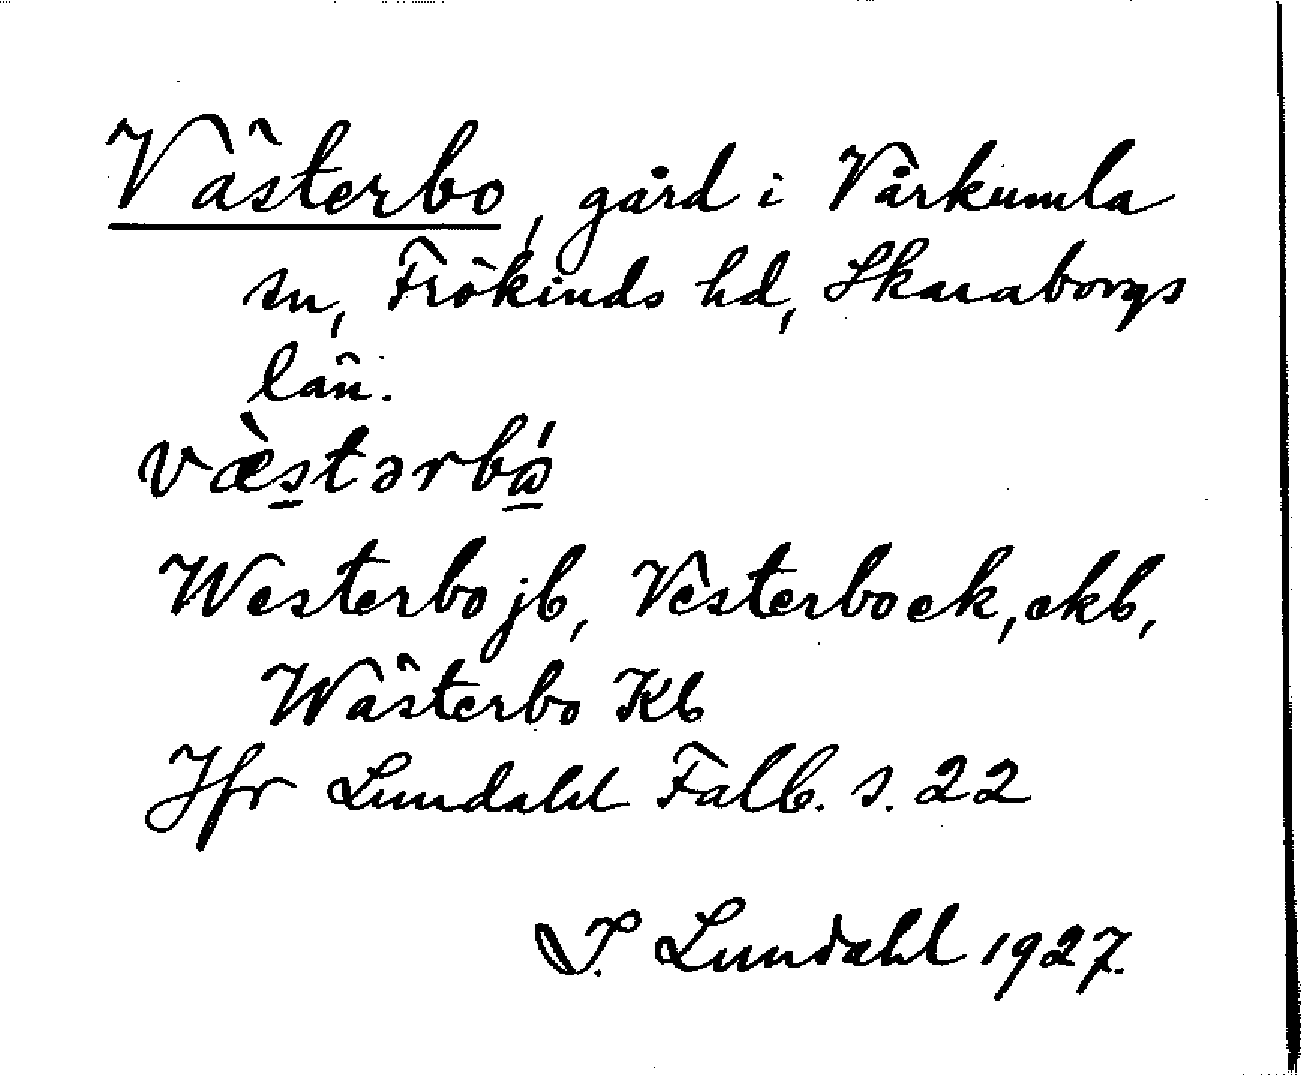 Västerbo, gård i Vårkumla
sn, Frökinds hd, Skaraborgs
län.
væ̀stərbǻ
Westerbo jb, Vesterbo ek, ekb,
Wästerbo Kb
Jfr Lundahl Falb. s. 22
I. Lundahl 1927.